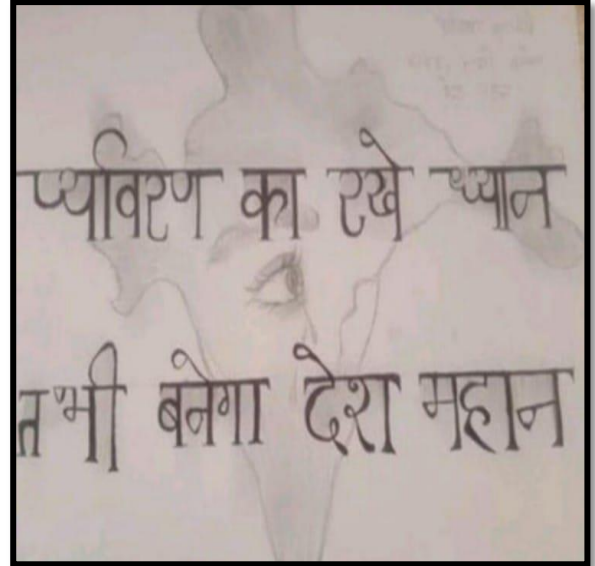 पर्यावरण का रखे ध्यान
तभी बनेगा देश महान